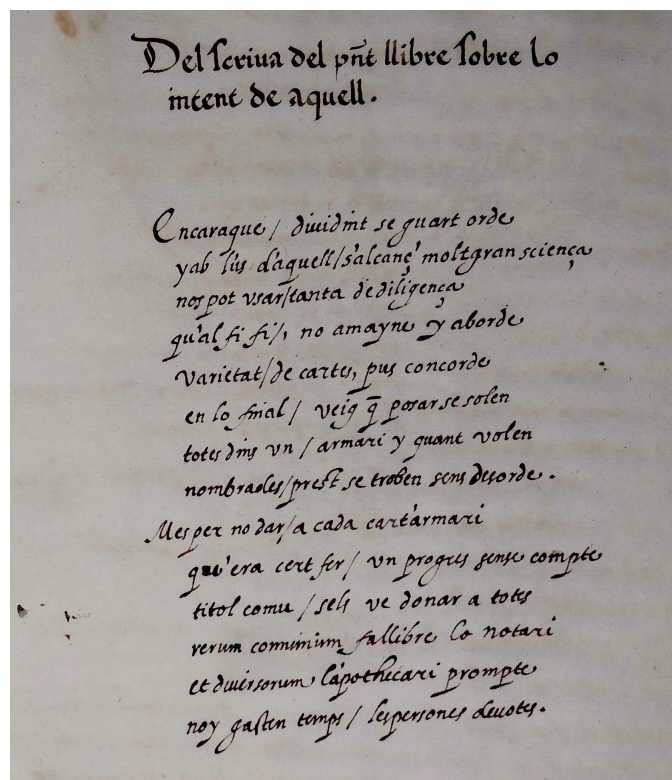 Del scriva del pñt llibre sobre lo
intent de aquell.
Encaraque / dividint se guart orde
y ab l'us d'aquell / s'alcançe' molt gran sciença
nos pot usar / tanta de diligença
qu'al fi fi /, no amayne y aborde
varietat / de cartes, pus concorde
en lo final / veig q̄ posar se solen
totes dins un / armari y quant volen
nombrades / prest se troben sens desorde.
Mes per no dar / a cada cart'armari
que'era cert fer / un progres sense compte
titol comu / sels ve donar a totes
rerum comunium fallibre lo notari
et diversorum l'apothecari prompte
noy gasten temps / les persones devotes.